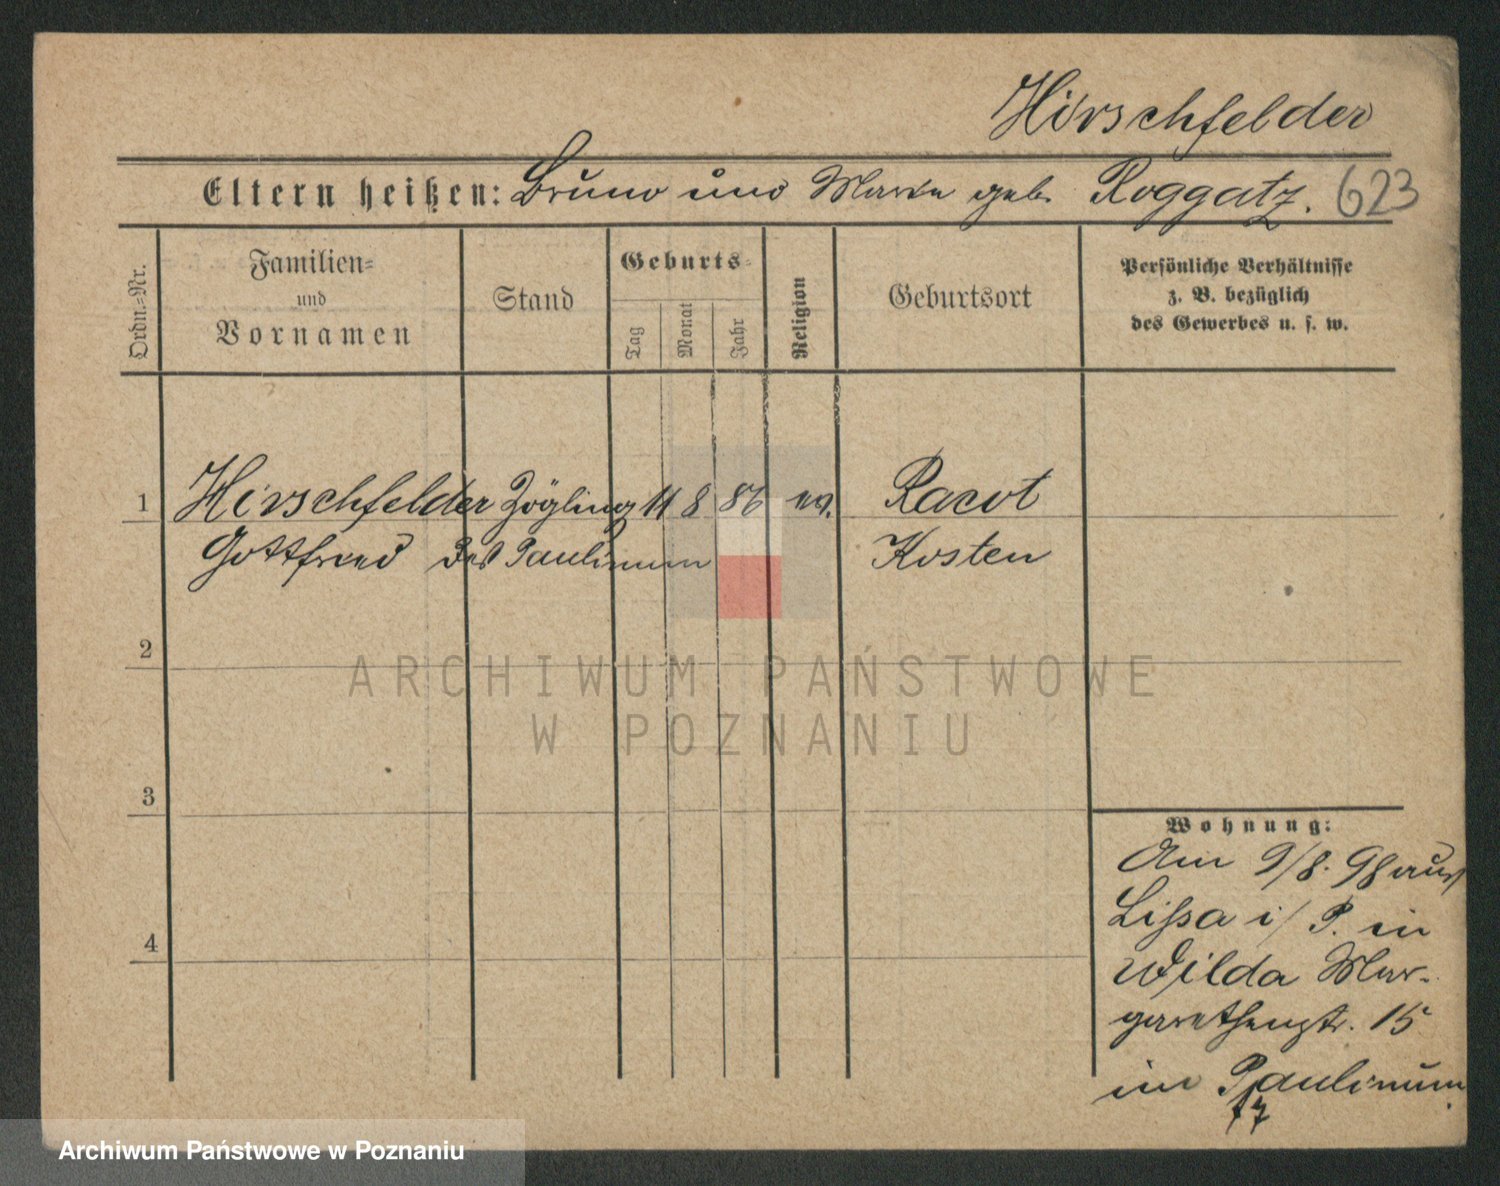 Hirschfelder
Eltern heißen: Bruno und Marie geb. Roggatz. 623
Ordn.=Nr.
Familien=
und
Vornamen
Stand
Geburts=
Tag
Monat
Jahr
Religion
Geburtsort
Persönliche Verhältnisse
z. B. bezüglich
des Gewerbes u. s. w.
1 Hirschfelder Zögling 11 8 86 ev. Racot
Gottfried des Paulinum Kosten
2
3
4
ARCHIWUM PAŃSTWOWE
W POZNANIU
Wohnung:
Am 9/8. 98 aus
Lissa i/P. in
Wilda Mar-
garethenstr. 15
im Paulinum.
Archiwum Państwowe w Poznaniu